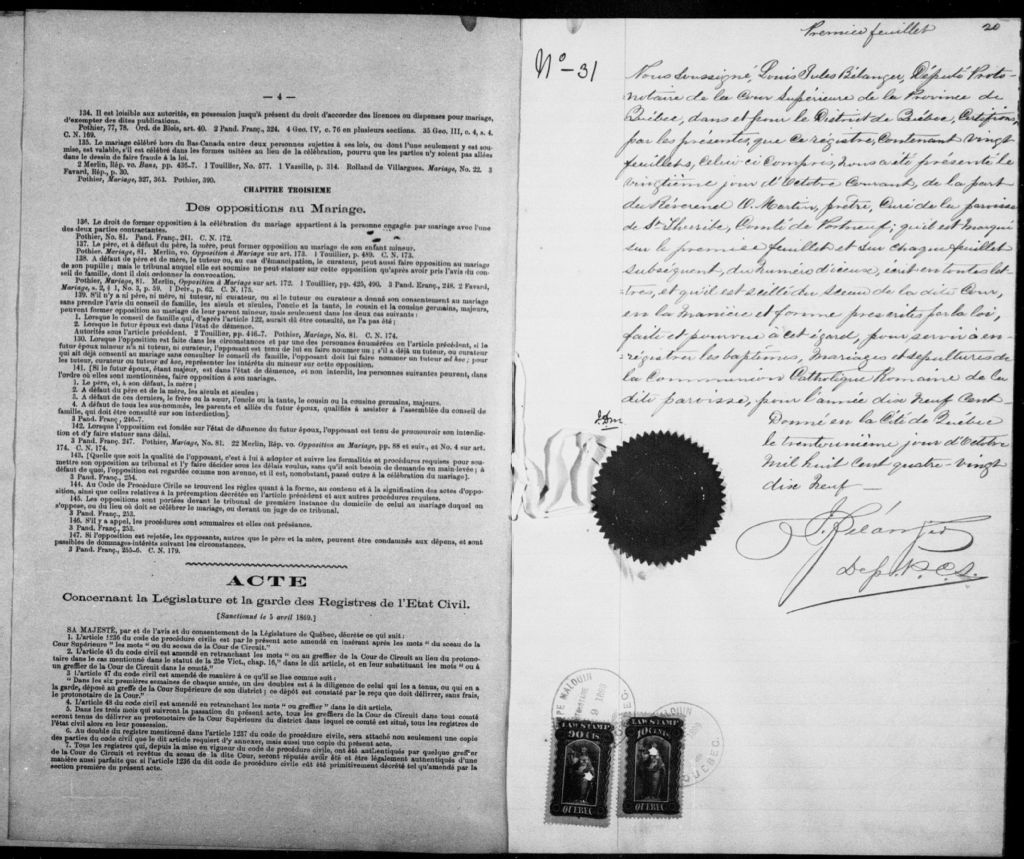 — 4 —
134. Il est loisible aux autorités, en possession jusqu'à présent du droit d'accorder des licences ou dispenses pour mariage,
d'exempter des dites publications.
Pothier, 77, 78. Ord. de Blois, art. 40. 2 Pand. Franç., 324. 4 Geo. IV, c. 76 en plusieurs sections. 35 Geo. III, c. 4, s. 4.
C. N. 169.
135. Le mariage célébré hors du Bas-Canada entre deux personnes sujettes à ses lois, ou dont l'une seulement y est sou-
mise, est valable, s'il est célébré dans les formes usitées au lieu de la célébration, pourvu que les parties n'y soient pas allées
dans le dessin de faire fraude à la loi.
2 Merlin, Rép. vo. Bans, pp. 436-7. 1 Touillier, No. 577. 1 Vazeille, p. 314. Rolland de Villargues. Mariage, No. 22. 3
Favard, Rép., p. 30.
Pothier, Mariage, 327, 363. Pothier, 390.
CHAPITRE TROISIEME
Des oppositions au Mariage.
136. Le droit de former opposition à la célébration du mariage appartient à la personne engagée par mariage avec l'une
des deux parties contractantes.
Pothier, No. 81. Pand. Franç., 241. C. N. 172.
137. Le père, et à défaut du père, la mère, peut former opposition au mariage de son enfant mineur.
Pothier, Mariage, 81. Merlin, vo. Opposition à Mariage sur art. 173. 1 Touillier, p. 489. C. N. 173.
138. A défaut de père et de mère, le tuteur ou, au cas d'émancipation, le curateur, peut aussi faire opposition au mariage
de son pupille; mais le tribunal auquel elle est soumise ne peut statuer sur cette opposition qu'après avoir pris l'avis du con-
seil de famille, dont il doit ordonner la convocation.
Pothier, Mariage, 81. Merlin, Opposition à Mariage sur art. 172. 1 Touillier, pp. 425, 490. 3 Pand. Franç., 248. 2 Favard,
Mariage, s. 2, § 1, No. 3, p. 59. 1 Doir., p. 62. C. N. 175.
139. S'il n'y a ni père, ni mère, ni tuteur, ni curateur, ou si le tuteur ou curateur a donné son consentement au mariage
sans prendre l'avis du conseil de famille, les aïeuls et aïeules, l'oncle et la tante, le cousin et la cousine germains, majeurs,
peuvent former opposition au mariage de leur parent mineur, mais seulement dans les deux cas suivants:
1. Lorsque le conseil de famille qui, d'après l'article 122, aurait dû être consulté, ne l'a pas été;
2. Lorsque le futur époux est dans l'état de démence.
Autorités sous l'article précédent. 2 Touillier, pp. 416-7. Pothier, Mariage, No. 81. C. N. 174.
130. Lorsque l'opposition est faite dans les circonstances et par une des personnes énumérées en l'article précédent, si le
futur époux mineur n'a ni tuteur, ni curateur, l'opposant est tenu de lui en faire nommer un; s'il a déjà un tuteur, ou curateur
qui ait déjà consenti au mariage sans consulter le conseil de famille, l'opposant doit lui faire nommer un tuteur ad hoc; pour
les tuteur, curateur ou tuteur ad hoc, représenter les intérêts du mineur sur cette opposition.
141. [Si le futur époux, étant majeur, est dans l'état de démence, et non interdit, les personnes suivantes peuvent, dans
l'ordre où elles sont mentionnées, faire opposition à son mariage.
1. Le père, et, à son défaut, la mère;
2. A défaut du père et de la mère, les aïeuls et aïeules;
3. A défaut de ces derniers, le frère ou la sœur, l'oncle ou la tante, le cousin ou la cousine germains, majeurs.
4. A défaut de tous les sus-nommés, les parents et alliés du futur époux, qualifiés à assister à l'assemblée du conseil de
famille, qui doit être consulté sur son interdiction].
3 Pand. Franç., 246-7.
142. Lorsque l'opposition est fondée sur l'état de démence du futur époux, l'opposant est tenu de promouvoir son interdic-
tion et d'y faire statuer sans délai.
3 Pand. Franç. 247. Pothier, Mariage, No. 81. 22 Merlin, Rép. vo. Opposition au Mariage, pp. 88 et suiv., et No. 4 sur art.
174. C. N. 174.
143. [Quelle que soit la qualité de l'opposant, c'est à lui à adopter et suivre les formalités et procédures requises pour sou-
mettre son opposition au tribunal et l'y faire décider sous les délais voulus, sans qu'il soit besoin de demande en main-levée; à
défaut de quoi, l'opposition est regardée comme non avenue, et il est, nonobstant, passé outre à la célébration du mariage].
3 Pand. Franç., 254.
144. Au Code de Procédure Civile se trouvent les règles quant à la forme, au contenu et à la signification des actes d'oppo-
sition, ainsi que celles relatives à la péremption décrétée en l'article précédent et aux autres procédures requises.
145. Les oppositions sont portées devant le tribunal de première instance du domicile de celui au mariage duquel on
s'oppose, ou du lieu où doit se célébrer le mariage, ou devant un juge de ce tribunal.
3 Pand. Franç., 253.
146. S'il y a appel, les procédures sont sommaires et elles ont préséance.
3 Pand. Franç., 253.
147. Si l'opposition est rejetée, les opposants, autres que le père et la mère, peuvent être condamnés aux dépens, et sont
passibles de dommages-intérêts suivant les circonstances.
3 Pand. Franç., 255-6. C. N. 179.
ACTE
Concernant la Législature et la garde des Registres de l'Etat Civil.
[Sanctionné le 5 avril 1869.]
SA MAJESTÉ, par et de l'avis et du consentement de la Législature de Québec, décrète ce qui suit:
1. L'article 1236 du code de procédure civile est par le présent acte amendé en insérant après les mots "du sceau de la
Cour Supérieure" les mots "ou du sceau de la Cour de Circuit."
2. L'article 45 du code civil est amendé en retranchant les mots "ou au greffier de la Cour de Circuit au lieu du protono-
taire dans le cas mentionné dans le statut de la 25e Vict., chap. 16," dans le dit article, et en leur substituant les mots "ou à
un greffier de la Cour de Circuit dans le comté."
3 L'article 47 du code civil est amendé de manière à ce qu'il se lise comme suit:
"Dans les six premières semaines de chaque année, un des doubles est à la diligence de celui qui les a tenus, ou qui en a
la garde, déposé au greffe de la Cour Supérieure de son district; ce dépôt est constaté par le reçu que doit délivrer, sans frais,
le protonotaire de la Cour."
4. L'article 48 du code civil est amendé en retranchant les mots "ou greffier" dans le dit article.
5. Dans les trois mois qui suivront la passation du présent acte, tous les greffiers de la Cour de Circuit dans tout comté
seront tenus de délivrer au protonotaire de la Cour Supérieure du district dans lequel ce comté est situé, tous les registres de
l'état civil alors en leur possession.
6. Au double du registre mentionné dans l'article 1237 du code de procédure civile, sera attaché non seulement une copie
des parties du code civile que le dit article requiert d'y annexer, mais aussi une copie du présent acte.
7. Tous les registres qui, depuis la mise en vigueur du code de procédure civile, ont été authentiqués par quelque greffier
de la Cour de Circuit et revêtus du sceau de la dite Cour, seront réputés avoir été et être légalement authentiqués d'une
manière aussi parfaite que si l'article 1236 du dit code de procédure civile eût été primitivement décrété tel qu'amendé par la
section première du présent acte.
Premier feuillet 20
No-31
Nous soussigné, Louis Jules Bélanger, Député Proto-
notaire de la Cour Supérieure de la Province de
Québec, dans et pour le District de Québec, Certifions
par les présentes, que ce registre, contenant vingt
feuillets, celui ci compris, nous a été présenté le
vingtième jour d'Octobre courant, de la part
du Révérend O. Martin, prêtre, Curé de la paroisse
de St. Thuribe, Comté de Portneuf; qu'il est marqué
sur le premier feuillet et sur chaque feuillet
subséquent, du numéro d'iceux, écrit en toutes let-
tres, et qu'il est scellé du sceau de la dite Cour,
en la manière et forme prescrites par la loi,
faite et pourvue à cet égard, pour servir à en-
régistrer les baptêmes, mariages et sépultures de
la Communion Catholique Romaine de la
dite paroisse, pour l'année dix neuf Cent
Donné en la Cité de Québec
le trente unième jour d'Octobre
mil huit Cent quatre-vingt
dix neuf —
J. Bélanger
Dep. P. C. S.
MALOUIN
QUEBEC.
LAW STAMP
90 CTS
QUEBEC
LAW STAMP
10 CENTS
QUEBEC